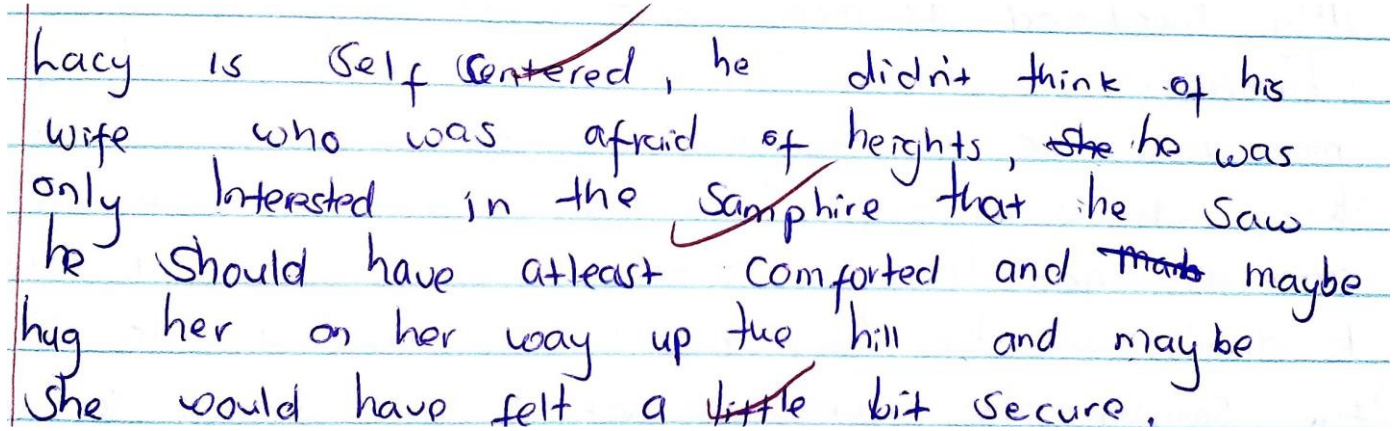 Lacy is self centered, he didn't think of his
wife who was afraid of heights, she he was
only Interested in the samphire that he saw
he should have atleast comforted and maybe
hug her on her way up the hill and maybe
she would have felt a little bit secure.